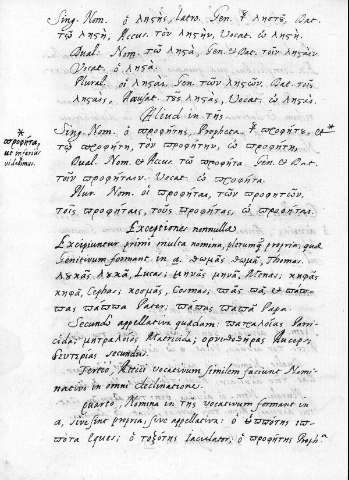 Sing. Nom. ὁ λῃςὴς, Latro. Gen. τ͂ λῃςοῦ, Dat.
τῷ λῃςῇ, Accus. τὸν λῃςὴν, Vocat. ὦ λῃςὴ.
Dual. Nom. τὼ λῃςὰ, Gen. & Dat. τοῖν λῃςαῖν
Vocat. ὦ λῃςά.
Plural. οἱ λῃςαὶ, Gen. τῶν λῃςῶν, Dat. τοῖς
λῃςαῖς, Accusat. τοὺς λῃςὰς, Vocat. ὦ λῃςαί.
Aliud in της
Sing. Nom. ὁ προφήτης, Propheta. τ͂ προφήτου, &*
τῷ προφήτῃ, τὸν προφήτην, ὦ προφήτη.
* προφήτα,
ut inferius
videbimus.
Dual. Nom. & Accus. τὼ προφήτα Gen. & Dat.
τοῖν προφήταιν. Vocat. ὦ προφήτα.
Plur. Nom. οἱ προφῆται, τῶν προφητῶν,
τοῖς προφήταις, τοὺς προφήτας, ὦ προφῆται.
Exceptiones nonnulla
Excipiuntur primi multa nomina, plerumq; propria, quae
Genitivum formant in α. Θωμᾶς Θωμᾶ, Thomas.
Λȣκᾶς Λȣκᾶ, Lucas; μηνᾶς μηνᾶ, Menas; κηφᾶς
κηφᾶ, Cephas; κοσμᾶς, Cosmas; πᾶς πᾶ, & πάπ-
πας πάππα Pater; πάπας πάπα Papa.
Secundo appellativa quaedam: πατραλοίας Parri-
cida; μητραλοίας Matricida; ὀρνιθοθήρας Auceps;
δευτερίας secundus.
Tertio, Attici vocativum similem faciunt Nomi-
nativi in omni declinatione.
Quarto, Nomina in της vocativum formant in
α, sive sint propria, sive appellativa: ὁ ἱππότης ἱπ-
πότα Eques; ὁ τοξότης Jaculator; ὁ προφήτης Proph^a